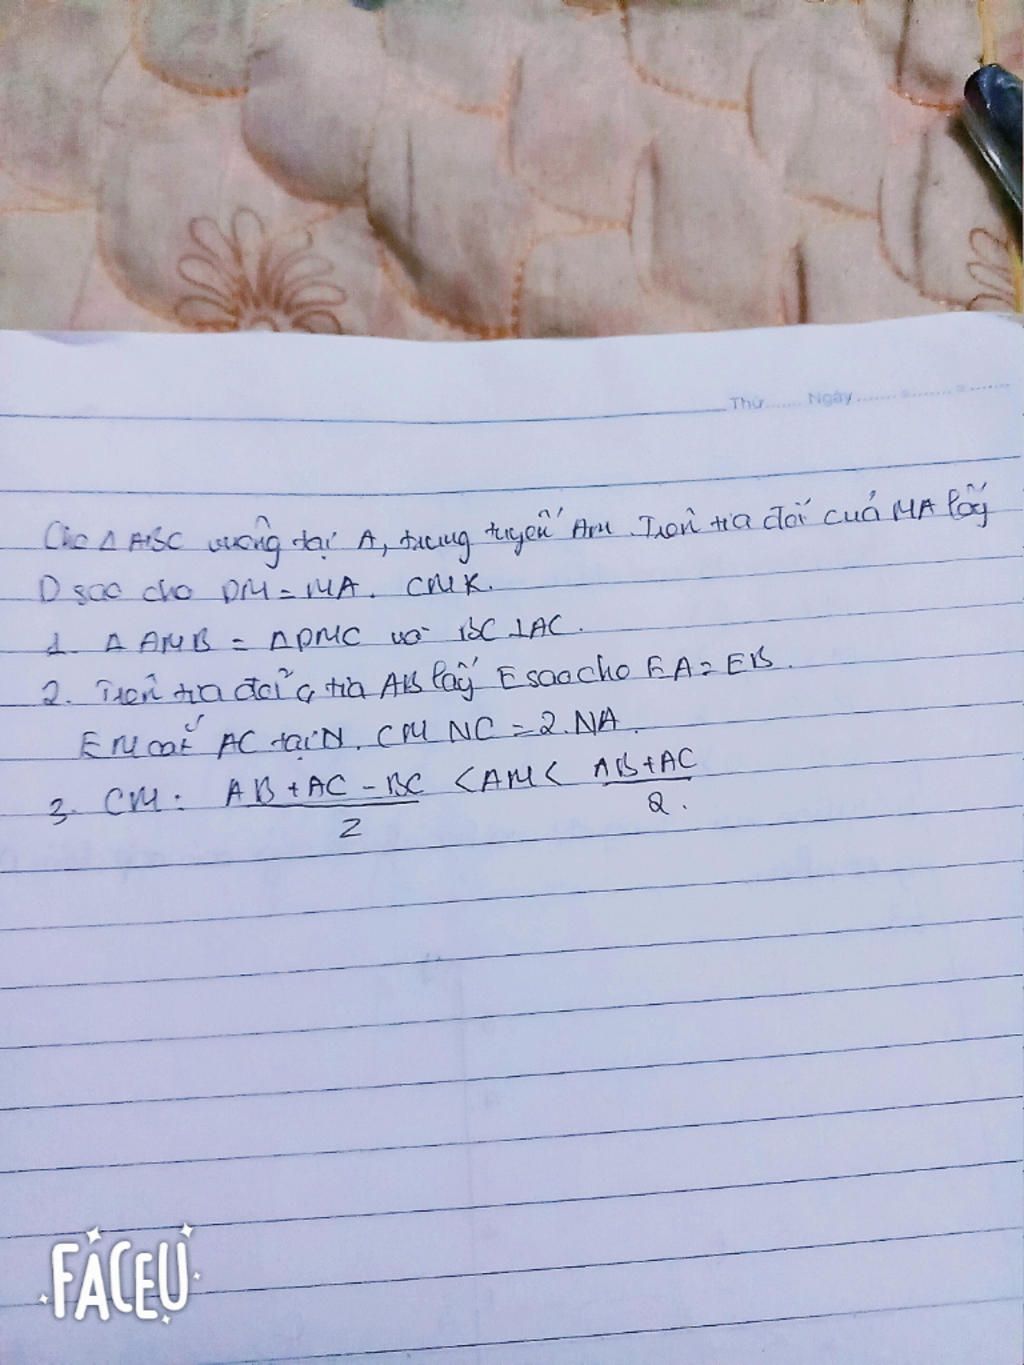 Thứ ....... Ngày .......
Cho Δ ABC vuông tại A, trung tuyến AM. Trên tia đối của MA lấy
D sao cho DM = MA. CMR.
1. Δ AMB = Δ DMC và BC ⊥ AC.
2. Trên tia đối tia AB lấy E sao cho EA = EB.
EM cắt AC tại N. CM NC = 2.NA.
3. CM: AB + AC - BC / 2 < AM < AB + AC / 2.
FACEU